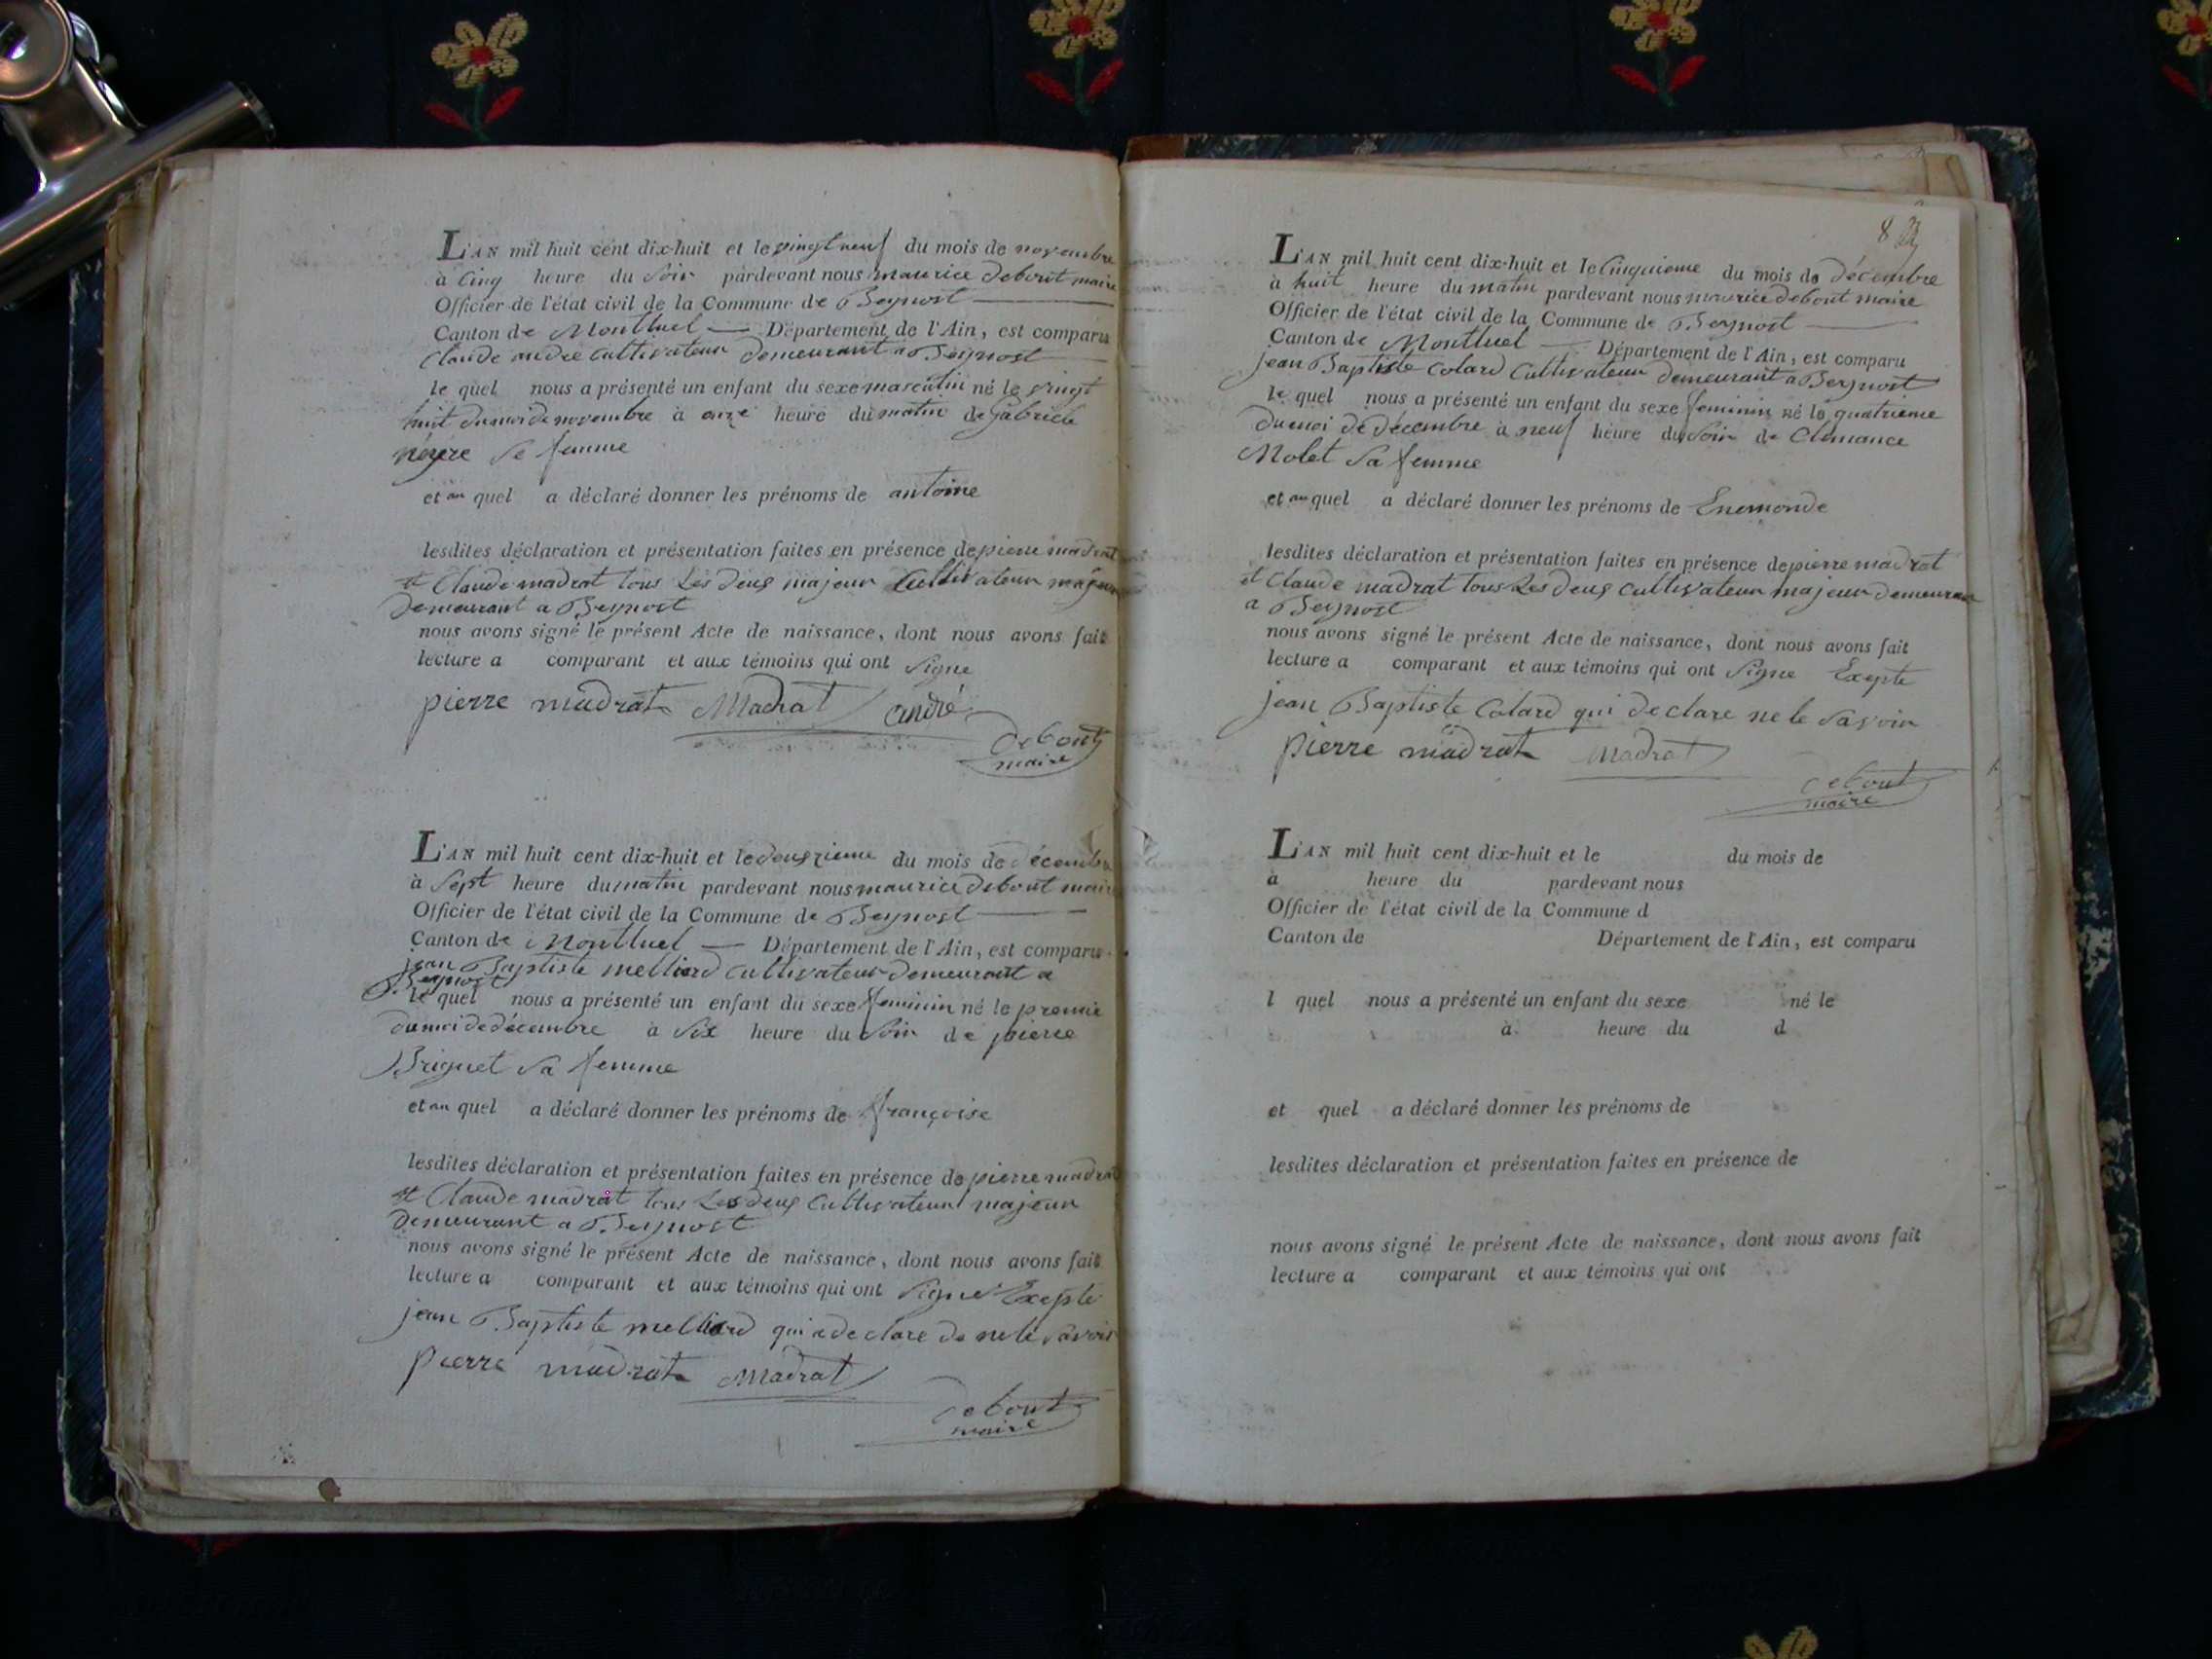 L'AN mil huit cent dix-huit et le vingt neuf du mois de novembre
à Cinq heure du Soir pardevant nous maurice debout maire
Officier de l'état civil de la Commune de Beynost
Canton de Montluel Département de l'Ain, est comparu
Claude andre Cultivateur demeurant a Beynost
le quel nous a présenté un enfant du sexe masculin né le vingt
huit du moi de novembre à onze heure du matin de Gabriele
sa femme
et au quel a déclaré donner les prénoms de antoine
lesdites déclaration et présentation faites en présence de pierre madrat
et Claude madrat tous Les deux majeur Cultivateur majeur
demeurant a Beynost
nous avons signé le présent Acte de naissance, dont nous avons fait
lecture a comparant et aux témoins qui ont Signe
pierre madrat Madrat andré
debout
maire
L'AN mil huit cent dix-huit et le deuxzieme du mois de décembre
à Sept heure du matin pardevant nous maurice debout maire
Officier de l'état civil de la Commune de Beynost
Canton de Montluel Département de l'Ain, est comparu
jean Baptiste melliard Cultivateur demeurant a
Beynost
le quel nous a présenté un enfant du sexe feminin né le premie
du moi de décembre à Six heure du Soir de pierre
Briguet Sa femme
et au quel a déclaré donner les prénoms de françoise
lesdites déclaration et présentation faites en présence de pierre madrat
et Claude madrat tous Les deux Cultivateur majeur
demeurant a Beynost
nous avons signé le présent Acte de naissance, dont nous avons fait
lecture a comparant et aux témoins qui ont Signe Exepte
jean Baptiste melliard qui a declare de ne le Savoir
pierre madrat Madrat
debout
maire
8
L'AN mil huit cent dix-huit et le Cinquieme du mois de décembre
à huit heure du matin pardevant nous maurice debout maire
Officier de l'état civil de la Commune de Beynost
Canton de Montluel Département de l'Ain, est comparu
jean Baptiste Colard Cultivateur demeurant a Beynost
le quel nous a présenté un enfant du sexe feminin né le quatrieme
du moi de décembre à neuf heure du Soir de Clemance
Molet Sa femme
et au quel a déclaré donner les prénoms de Enemonde
lesdites déclaration et présentation faites en présence de pierre madrat
et Claude madrat tous Les deux Cultivateur majeur demeurant
a Beynost
nous avons signé le présent Acte de naissance, dont nous avons fait
lecture a comparant et aux témoins qui ont Signe Exepte
jean Baptiste Colard qui declare ne le Savoir
pierre madrat Madrat
debout
maire
L'AN mil huit cent dix-huit et le du mois de
à heure du pardevant nous
Officier de l'état civil de la Commune d
Canton de Département de l'Ain, est comparu
l quel nous a présenté un enfant du sexe né le
à heure du d
et quel a déclaré donner les prénoms de
lesdites déclaration et présentation faites en présence de
nous avons signé le présent Acte de naissance, dont nous avons fait
lecture a comparant et aux témoins qui ont